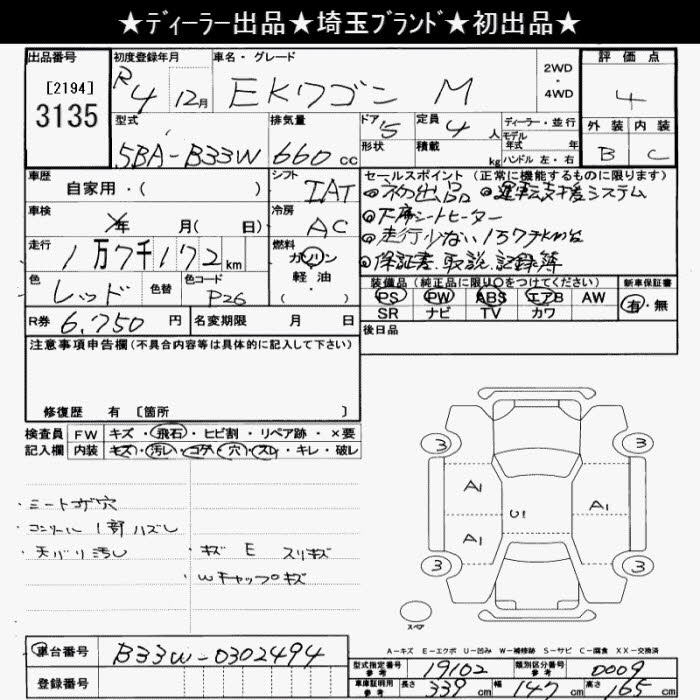 ★ディーラー出品★埼玉ブランド★初出品★
出品番号
[2194]
3135
初度登録年月
R4 12月
車名・グレード
EKワゴン M
2WD
・
4WD
評価点
4
外装 内装
B C
型式
5BA-B33W
排気量
660 cc
ドア 5
形状
定員 4 人
積載 kg
ディーラー・並行
モデル
年式 年
ハンドル 左・右
車歴
自家用・( )
シフト
IAT
車検
年 月( 日)
冷房
AC
走行
1万7千172km
燃料
ガソリン
軽・油
・( )
色
レッド
色替
色コード
P26
R券 6,750 円
名変期限 月 日
セールスポイント(正常に機能するものに限ります)
◎初出品 ◎運転支援システム
◎下席シートヒーター
◎走行少ない1万7千km台
◎保証書、取説、記録簿
装備品(純正品に限り○をつけてください)
PS PW ABS エアB AW
SR ナビ TV カワ
新車保証書
有・無
後日品
注意事項申告欄(不具合内容等は具体的に記入して下さい)
修復歴 有 〔箇所 〕
検査員
記入欄
FW キズ・飛石・ヒビ割・リペア跡・×要
内装 キズ・汚レ・コゲ・穴・スレ・キレ・破レ
・シートコゲ穴
・コンソール1部ハズレ
・天バリ汚レ
・キズ E スリキズ
・Wキャップキズ
3 3
A1 A1
U1
A1
3 3
スペア
A-キズ E-エクボ U-凹み W-補修跡 S-サビ C-腐食 XX-交換済
車台番号 B33W-0302494
登録番号
型式指定番号
参考
19102
類別区分番号
参考
0009
車庫証明用
参考
長さ 339 cm 幅 147 cm 高さ 165 cm